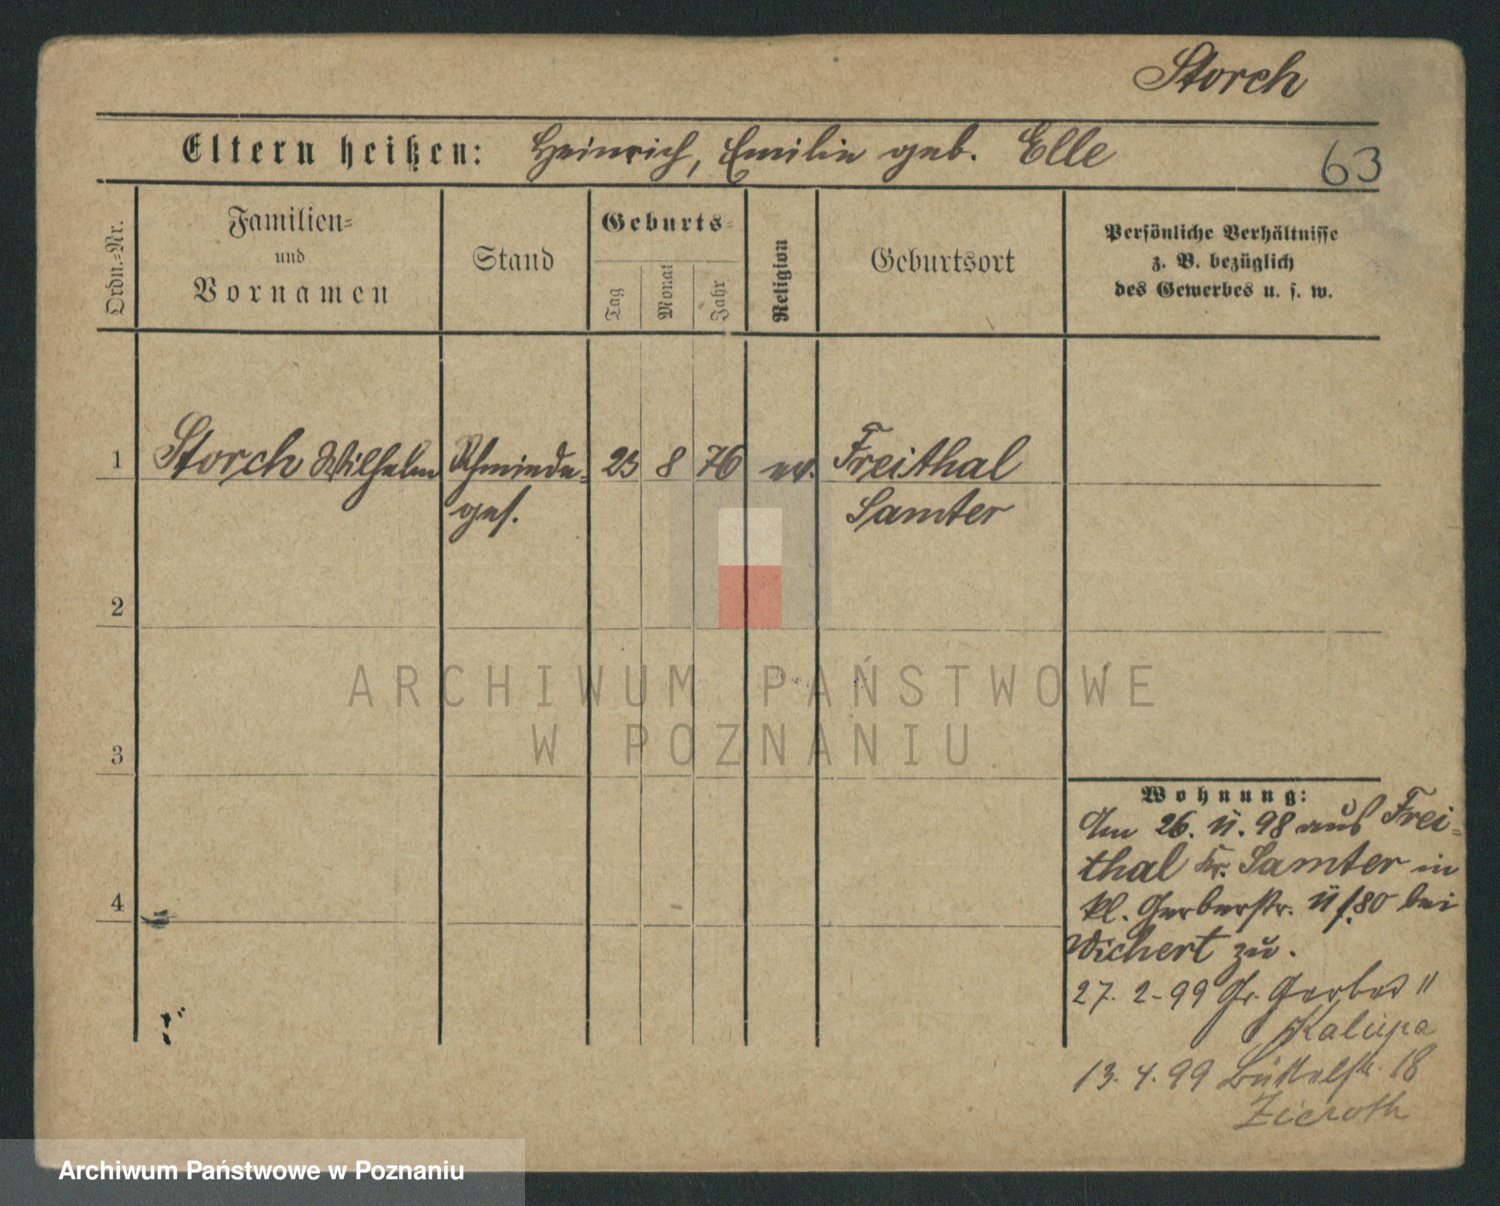 Storch
Eltern heißen: Heinrich, Emilie geb. Elle
63
Ordn.-Nr.
Familien-
und
Vornamen
Stand
Geburts-
Tag
Monat
Jahr
Religion
Geburtsort
Persönliche Verhältnisse
z. B. bezüglich
des Gewerbes u. s. w.
1 Storch Wilhelm Schmiede- 23 8 76 ev. Freithal
ges. Samter
2
3
4
ARCHIWUM PAŃSTWOWE
W POZNANIU
Wohnung:
Am 26. 11. 98 aus Frei-
thal Kr. Samter in
kl. Gerberstr. 11 bei
Wichert zu.
27. 2-99 Gr. Gerber 11
Kalupa
13. 4. 99 Büttelstr. 18
Zieroth
Archiwum Państwowe w Poznaniu